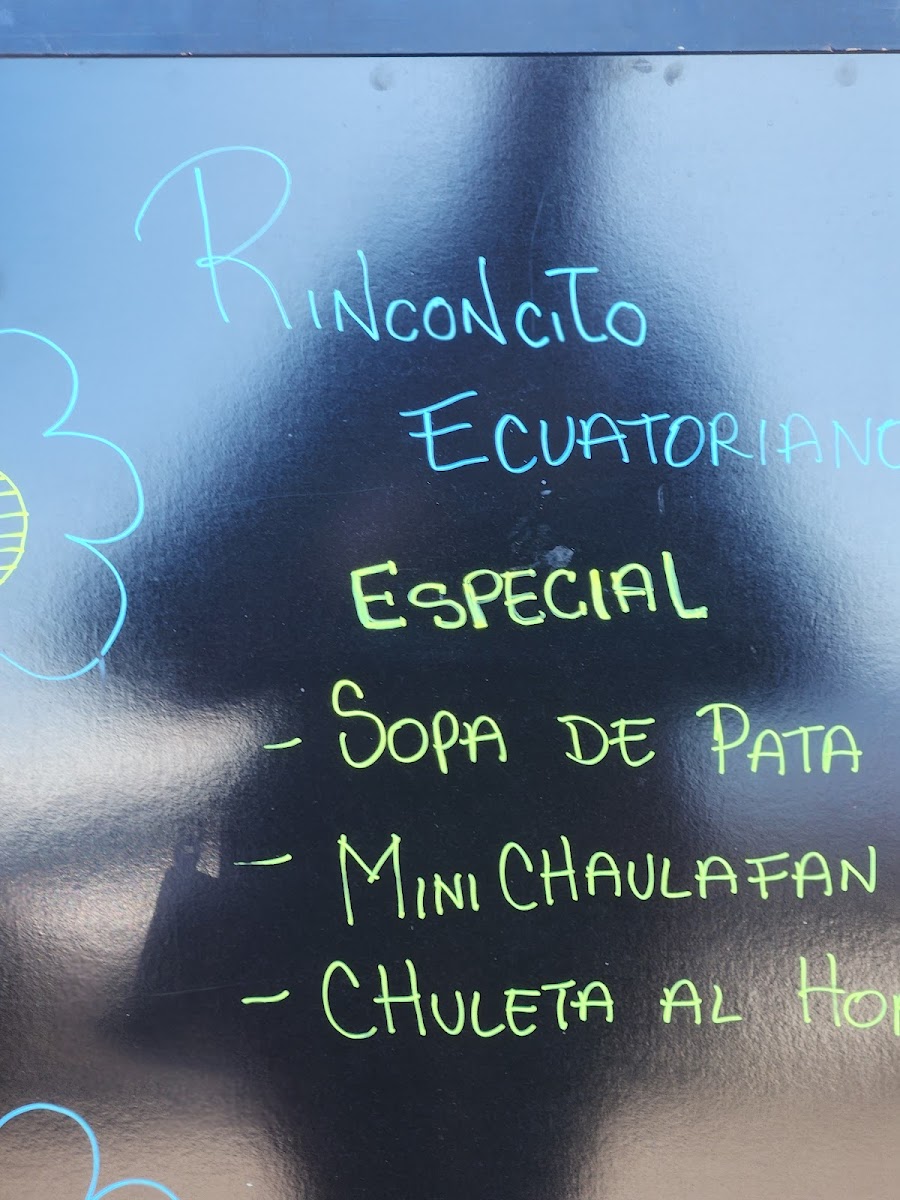 RINCONCITO
ECUATORIANO
ESPECIAL
- SOPA DE PATA
- MINI CHAULAFAN
- CHULETA AL